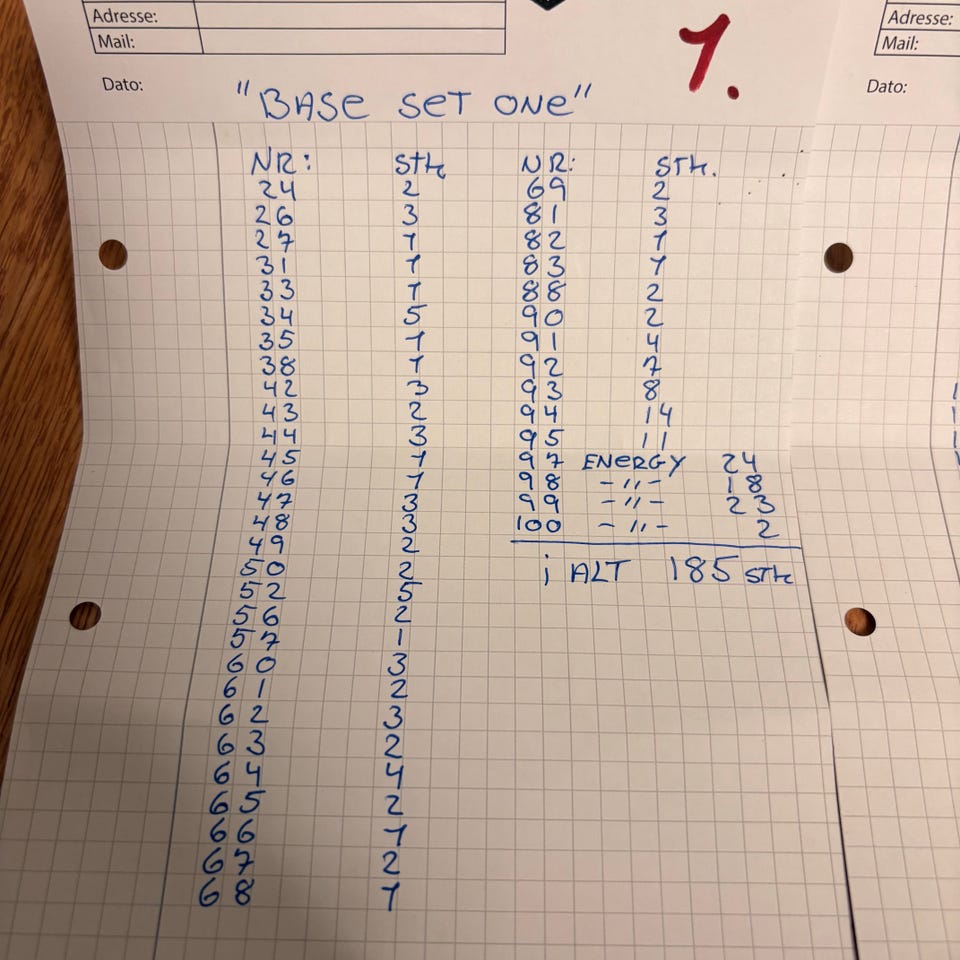 Adresse:
Mail:
Dato:
1.
"BASE SET ONE"
NR: Stk
24 2
26 3
27 1
31 1
33 1
34 5
35 1
38 1
42 3
43 2
44 3
45 1
46 1
47 3
48 3
49 2
50 2
52 5
56 2
57 1
60 3
61 2
62 3
63 2
64 4
65 2
66 1
67 2
68 1
NR: STK.
69 2
81 3
82 1
83 1
88 2
90 2
91 4
92 7
93 8
94 14
95 11
97 ENERGY 24
98 -"- 18
99 -"- 23
100 -"- 2
i ALT 185 STK
Adresse:
Mail:
Dato: